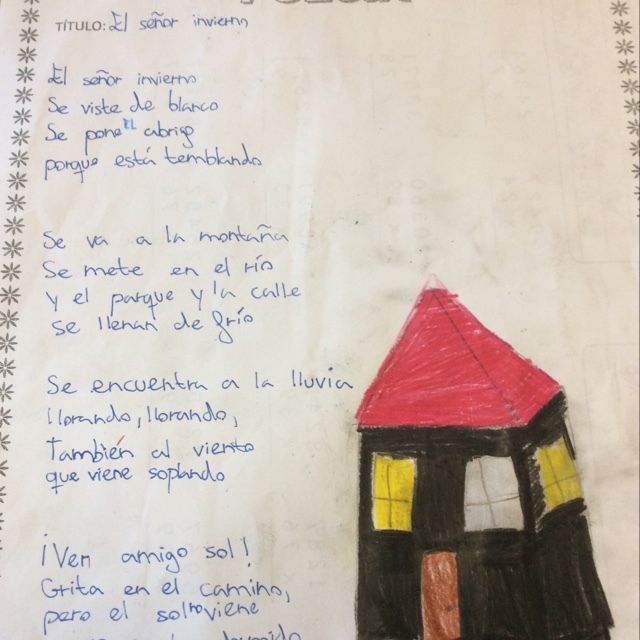 TÍTULO: El señor invierno
El señor invierno
Se viste de blanco
Se pone el abrigo
porque está temblando
Se va a la montaña
Se mete en el río
Y el parque y la calle
se llenan de frío
Se encuentra a la lluvia
llorando, llorando,
También al viento
que viene soplando
¡Ven amigo sol!
Grita en el camino,
pero el sol no viene